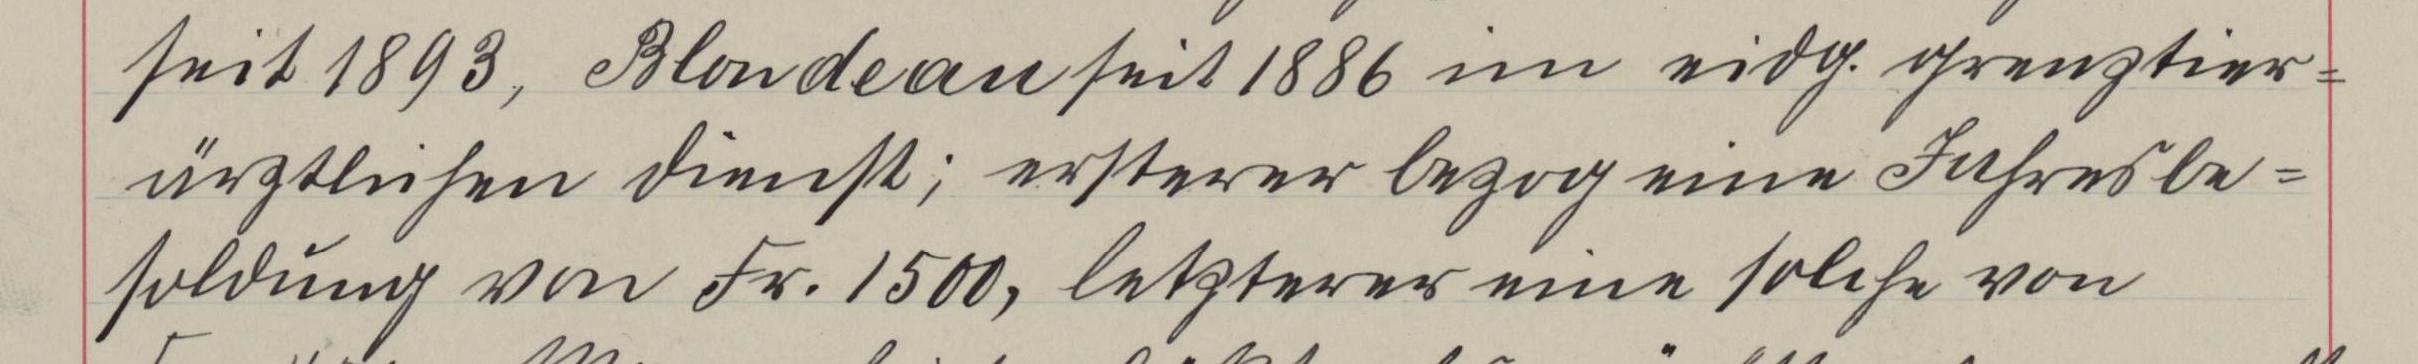 seit 1893, Blondeau seit 1886 im eidg. grenztier=
ärztlichen Dienst; ersterer bezog eine Jahresbe=
soldung von Fr. 1500, letzterer eine solche von